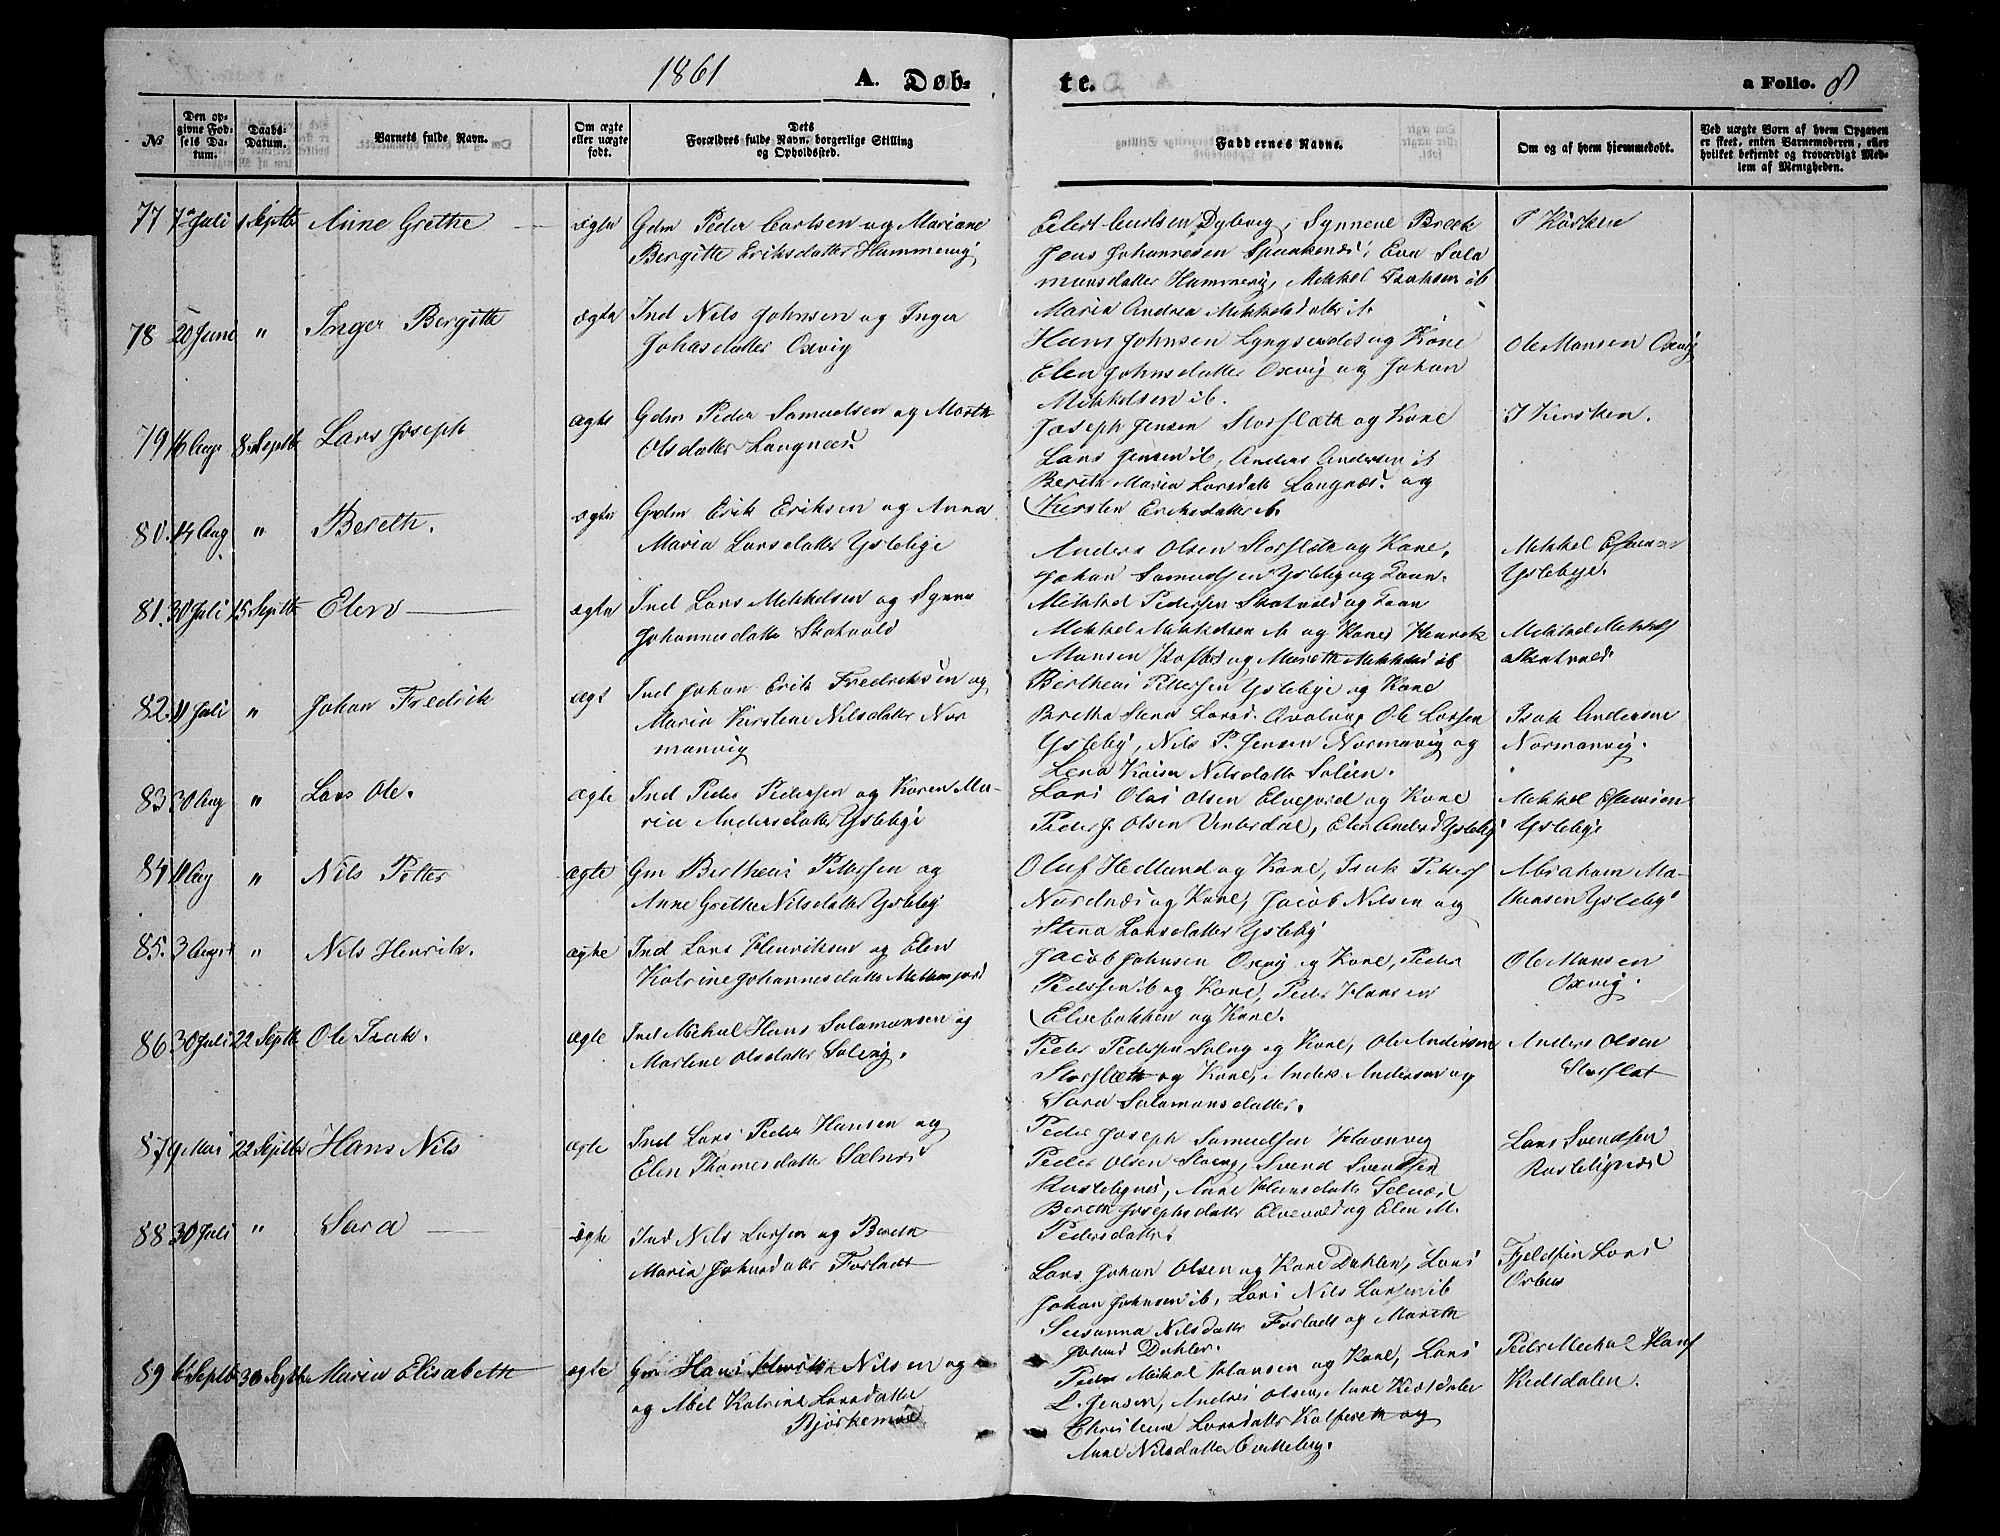 1861 A. Døb- te. a Folio. 8
№ Den opgivne Fødsels Datum. Daabs-Datum. Barnets fulde Navn. Om ægte eller uægte født. Dets Forældres fulde Navn, borgerlige Stilling og Opholdssted. Faddernes Navne. Om og af hvem hjemmedøbt. Ved uægte Børn af hvem Opgaven er skeet, enten Barnemoderen, eller hvilket bekjendt og troværdigt Medlem af Menigheden.
77 7de Juli 1 Septbr Anne Grethe ægte Gdm Peder Carlsen og Mariane
Bergitte Eriksdatter Hammervig
Eilert Carlsen Dybvig, Synneve Bræk
Jens Johannesen Spaakenæs, Eva Sala
monsdatter Hammervig, Mikkel Isaksen ib
Maria Andrea Mikkelsdatter ib.
I Kirken
78 20 Juni " Inger Bergitte ægte Ind Nils Johnsen og Inger
Johasdatter Oxvig
Hans Johnsen Lyngseidet og Kone
Elen Johnsdatter Oxvig og Johan
Mikkelsen ib.
Ole Monsen Oxvig
79 16 Aug 8 Septbr Lars Joseph ægte Gdm Peder Samuelsen og Marth
Olsdatter Langnæs.
Joseph Jensen Storslæth og Kone
Lars Jensen ib, Anders Andersen ib
Bereth Maria Larsdatt Langnæs. og
Kirsten Eriksdatter ib.
I Kirken.
80. 14 Aug " Bereth. ægte Gdm Erik Eriksen og Anna
Maria Larsdatter Ysteby
Anders Olsen Storslæth og Kone,
Johan Samuelsen Ysteby og Kone.
Mikkel Esaisen
Ystebye.
81. 30 Juli 15 Septbr Elen ægte Ind Lars Mikkelsen og Synne
Johannesdatter Skatvold
Mikkel Pedersen Skatvold og Kone
Mikkel Mikkelsen ib og Kone Henrik
Monsen og Mareth Mikkels ib
Mikkel Mikkels
Skatvold.
82. 11 Juli " Johan Fredrik ægt Ind Johan Erik Fredriksen og
Maria Kirstine Nilsdatter Nor
manvig
Bertheus Pettersen Ystebye og Kone
Ole Larsen
Ysteby, Nils P. Jensen Normanvig og
Lena Kaisa Nilsdatter Solien.
Isak Andersen
Normanvig.
83 30 Aug " Lars Ole. ægte Ind Peder Pedersen og Karen Ma-
ria Andersdatter Ystebye
Lars Olai Olsen Elvejord og Kone
Peder J. Olsen Vinterdal, Elen Andersd Ysteby
Mikkel Esaisen
Ystebye
84 11 Aug " Nils Petter ægte Gm Bertheus Pettersen og
Anne Grethe Nilsdatter Ysteby
Oluf Hedlund og Kone, Isak Petters
Nordnæs og Kone, Jacob Nilsen og
Stina Larsdatter Ysteby
Abraham Ma-
thisen Ysteby
85. 3 August " Nils Henrik. ægte Ind Lars Henriksen og Elen
Katrine Johannesdatter Mellemjord
Jacob Johnsen Oxvig og Kone, Peder
Pedersen ib og Kone, Peder Hansen
Elvebakken og Kone.
Ole Monsen
Oxvig.
86 30 Juli 22 Septbr Ole Isak. ægte Ind Mikal Hans Salamonsen og
Martine Olsdatter Solvig.
Peder Pedersen Solvig og Kone, Ole Andersen
Storslæth og Kone, Anders Andersen og
Sara Salamonsdatter.
Anders Olsen
Storslæt
87 9 Mai 22 Septbr Hans Nils ægte Ind Lars Peder Hansen og
Elen Thomesdatter Selnæs
Peder Joseph Samuelsen Havnvig
Peder Olsen Storeng, Svend Svendsen
Rastebynæs, Anne Hansdatter Selnæs
Bereth Josephsdatter Elvevold og Elen M.
Pedersdatter.
Lars Svendsen
Rastebynæs
88 30 Juli " Sara ægte Ind Nils Larsen og Bereth
Maria Johnsdatter Forladt
Lars Johan Olsen og Kone Dahlen, Lars
Johan Johnsen ib, Lars Nils Larsen ib
Susanna Nilsdatter Forladt og Mareth
Johns Dahlen.
Fjeldfin Lars
Orbus
89 1 Septb 30 Septbr Maria Elisabeth ægte Gm Hans Henrik Nilsen og
og Abel Katrine Larsdatter
Bjørkemoe
Peder Mikal Hansen og Kone, Lars
L. Jensen, Anders Olsen, Anne Kiedtdalen
Christense Larsdatter og
Anne Nilsdatter
Peder Mechal Hans
Kedtdalen.